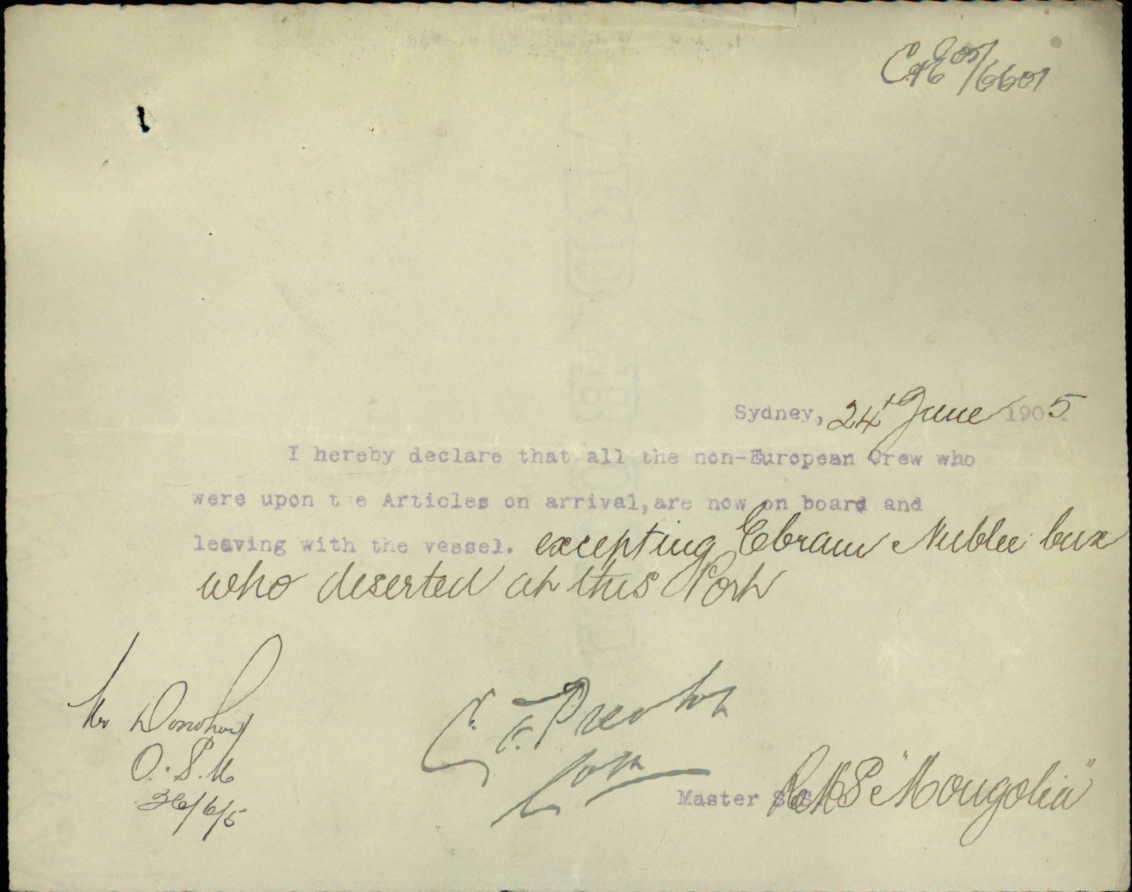 C&E 05/6601
Sydney, 24th June 1905.
I hereby declare that all the non-European Crew who
were upon t e Articles on arrival, are now on board and
leaving with the vessel. excepting Ebram Nublee bux
who deserted at this Port
Mr Donohoe
O.S.M
26/6/5
C. F. Preston
Master RMS "Mongolia"